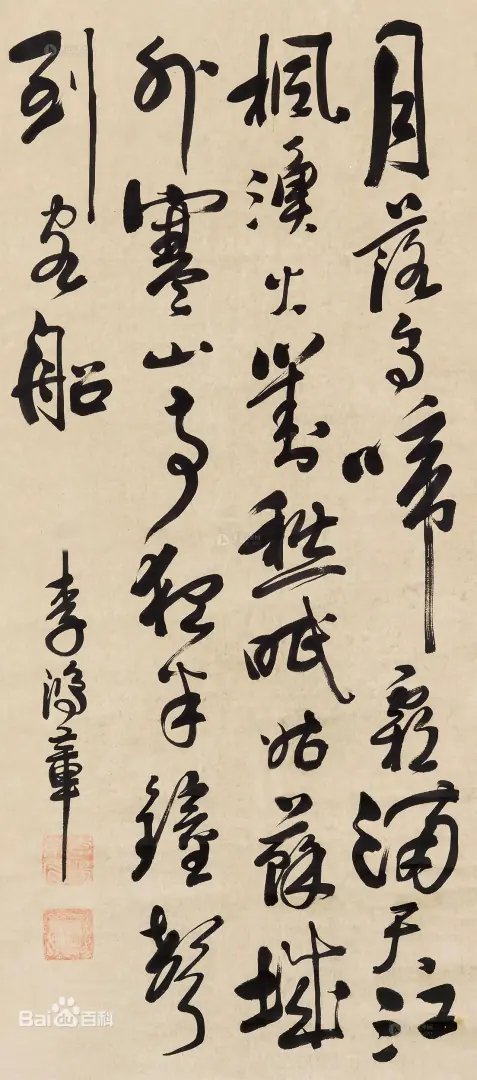 月落烏啼霜滿天江
楓漁火對愁眠姑蘇城
外寒山寺夜半鐘聲
到客船
李鴻章
Bai du 百科